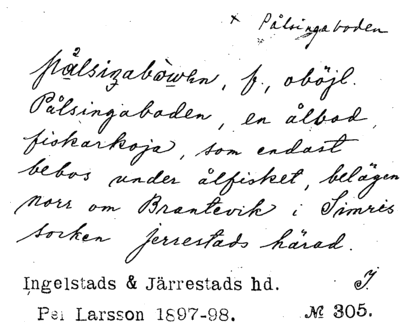 × Pålsingaboden
pålsiŋabòwen, f., oböjl.
Pålsingaboden, en ålbod,
fiskarkoja, som endast
bebos under ålfisket, belägen
norr om Brantevik i Simris
socken jerrestads härad.
Ingelstads & Järrestads hd. I.
Per Larsson 1897-98. № 305.